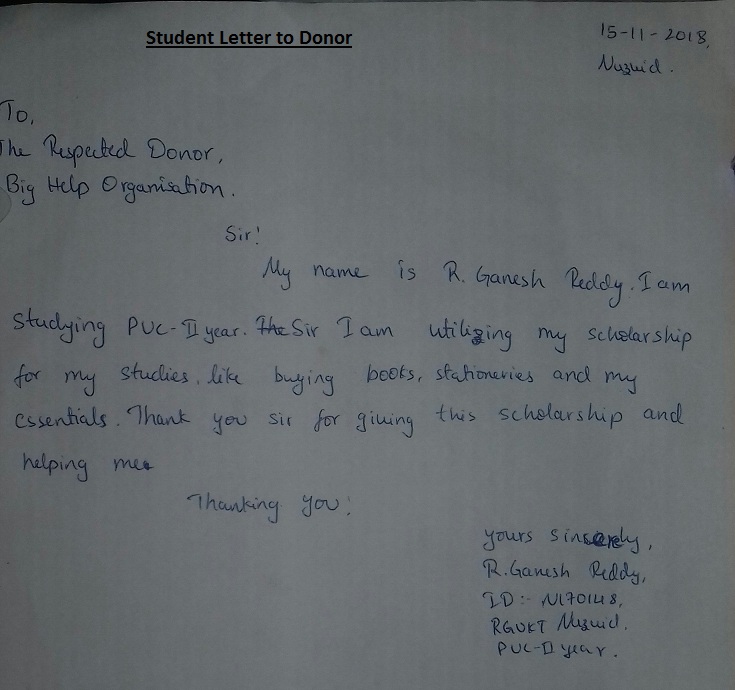 Student Letter to Donor
15-11-2018,
Nuzvid.
To,
The Respected Donor,
Big Help Organisation.
Sir!
My name is R. Ganesh Reddy. I am
studying PUC-II year. The Sir I am utilizing my scholarship
for my studies, like buying books, stationeries and my
essentials. Thank you sir for giving this scholarship and
helping me
Thanking you!
yours sincerely,
R. Ganesh Reddy,
ID:- N170148,
RGUKT Nuzvid.
PUC-II year.